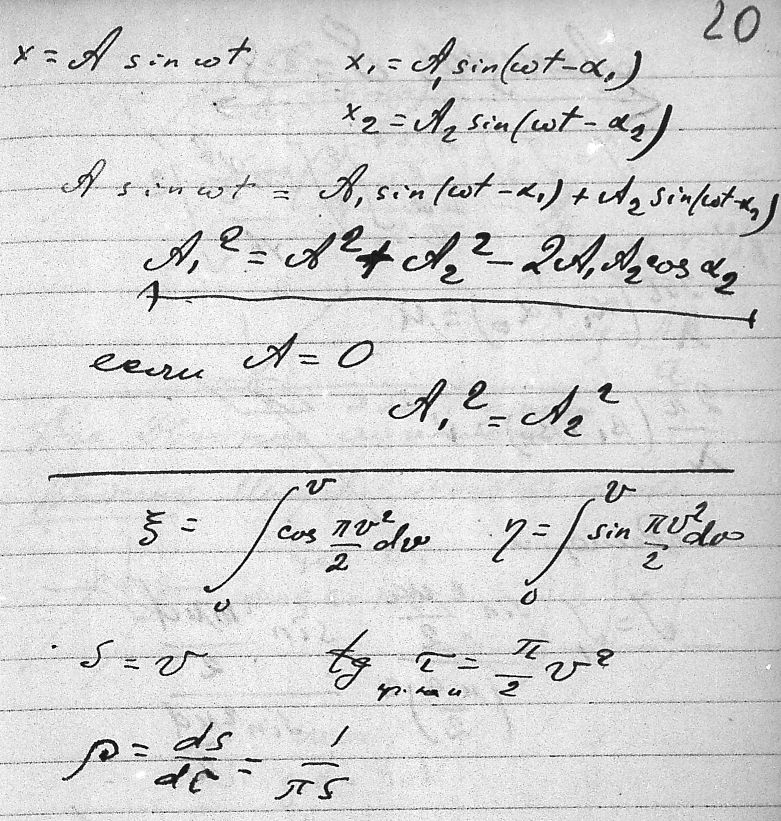 20
x = A sin ωt x₁ = A₁ sin(ωt - α₁)
x₂ = A₂ sin(ωt - α₂)
A sin ωt = A₁ sin(ωt - α₁) + A₂ sin(ωt - α₂)
A₁² = A² + A₂² - 2A₁A₂ cos α₂
если A = 0
A₁² = A₂²
ξ = ∫₀ᵛ cos πv²/2 dv η = ∫₀ᵛ sin πv²/2 dv
S = v tg τ = π/2 v²
ρ = ds/dτ = 1/πs